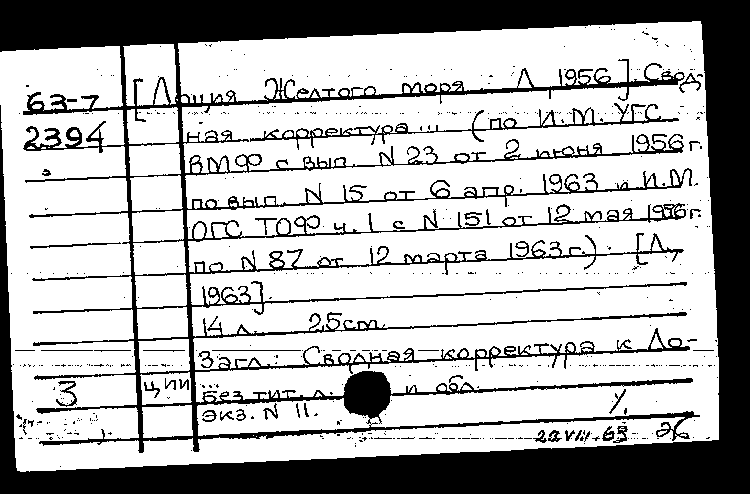 63-7 [Лоция Желтого моря. Л, 1956]. Свод-
2394 ная корректура... (по И.М. УГС
ВМФ с вып. N 23 от 2 июня 1956 г.
по вып. N 15 от 6 апр. 1963 и И.М.
ОГС ТОФ ч. 1 с N 151 от 12 мая 1956 г.
по N 87 от 12 марта 1963 г.). [Л.,
1963].
14 л. 25 cm.
Загл.: Сводная корректура к Ло-
3 ции ...
Без тит. л. и обл.
экз. N 11.
22 VIII.63